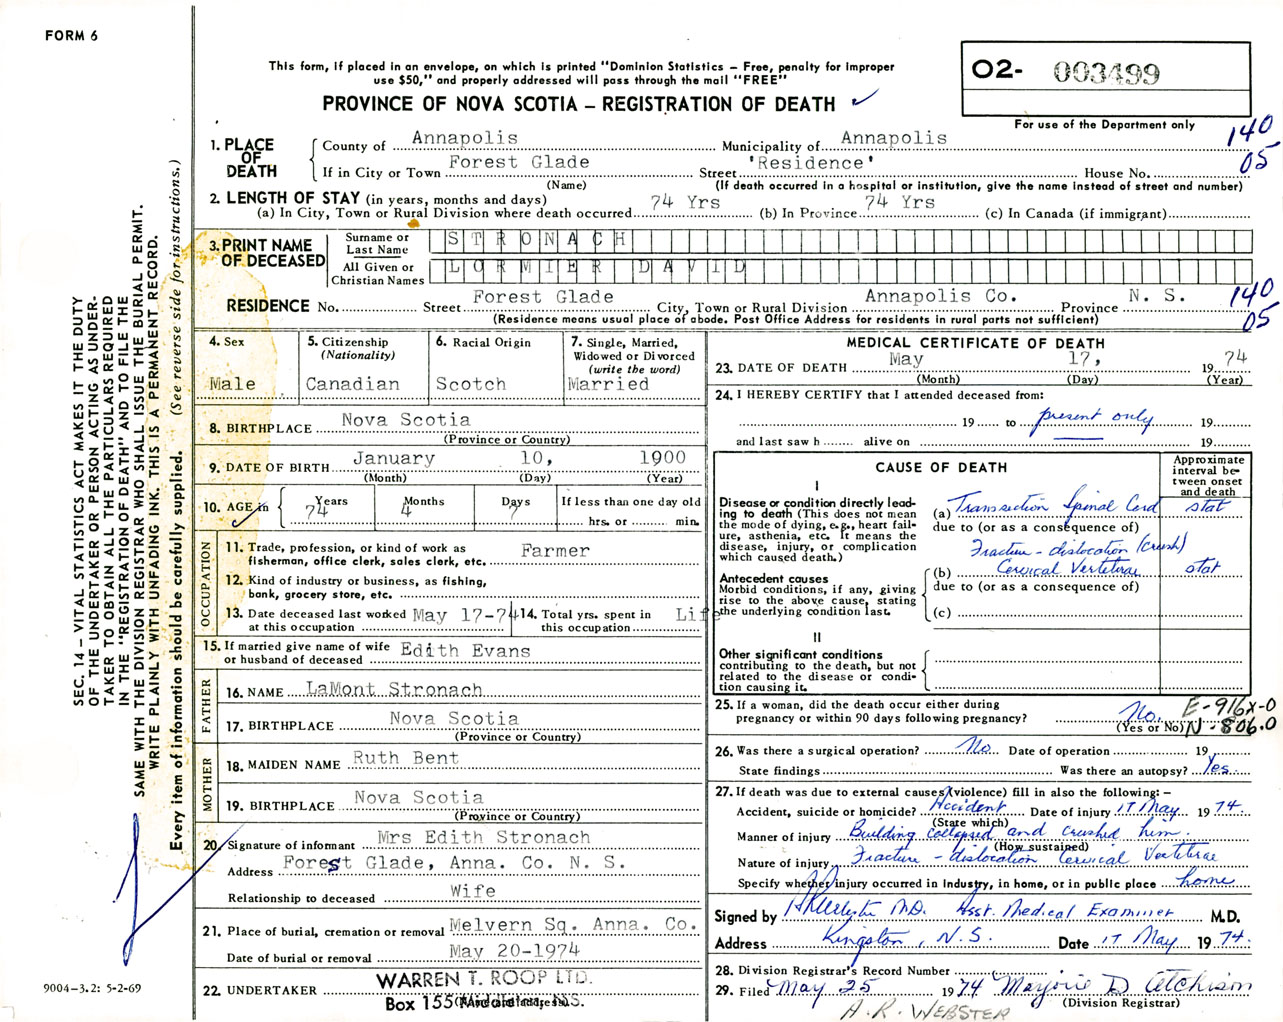 FORM 6
This form, if placed in an envelope, on which is printed "Dominion Statistics – Free, penalty for improper
use $50," and properly addressed will pass through the mail "FREE"
PROVINCE OF NOVA SCOTIA – REGISTRATION OF DEATH ✓
02- 003499
For use of the Department only
140
05
1. PLACE OF DEATH
County of Annapolis Municipality of Annapolis
If in City or Town Forest Glade Street 'Residence' House No.
(Name) (If death occurred in a hospital or institution, give the name instead of street and number)
2. LENGTH OF STAY (in years, months and days)
(a) In City, Town or Rural Division where death occurred 74 Yrs (b) In Province 74 Yrs (c) In Canada (if immigrant)
3. PRINT NAME OF DECEASED
Surname or Last Name STRONACH
All Given or Christian Names LORMIER DAVID
RESIDENCE No. Street Forest Glade City, Town or Rural Division Annapolis Co. Province N. S. 140
(Residence means usual place of abode. Post Office Address for residents in rural parts not sufficient) 05
4. Sex Male
5. Citizenship (Nationality) Canadian
6. Racial Origin Scotch
7. Single, Married, Widowed or Divorced (write the word) Married
8. BIRTHPLACE Nova Scotia
(Province or Country)
9. DATE OF BIRTH January 10, 1900
(Month) (Day) (Year)
10. AGE in Years 74 Months 4 Days 7 If less than one day old
hrs. or min.
OCCUPATION
11. Trade, profession, or kind of work as fisherman, office clerk, sales clerk, etc. Farmer
12. Kind of industry or business, as fishing, bank, grocery store, etc.
13. Date deceased last worked at this occupation May 17-74
14. Total yrs. spent in this occupation Life
15. If married give name of wife or husband of deceased Edith Evans
FATHER
16. NAME LaMont Stronach
17. BIRTHPLACE Nova Scotia
(Province or Country)
MOTHER
18. MAIDEN NAME Ruth Bent
19. BIRTHPLACE Nova Scotia
(Province or Country)
20. Signature of informant Mrs Edith Stronach
Address Forest Glade, Anna. Co. N. S.
Relationship to deceased Wife
21. Place of burial, cremation or removal Melvern Sq. Anna. Co.
Date of burial or removal May 20-1974
22. UNDERTAKER WARREN T. ROOP LTD.
Box 155 Middleton, N.S.
MEDICAL CERTIFICATE OF DEATH
23. DATE OF DEATH May 17, 1974
(Month) (Day) (Year)
24. I HEREBY CERTIFY that I attended deceased from:
19 to present only 19
and last saw h alive on 19
CAUSE OF DEATH
Approximate interval between onset and death
I
Disease or condition directly leading to death (This does not mean the mode of dying, e.g., heart failure, asthenia, etc. It means the disease, injury, or complication which caused death.)
(a) Transection Spinal Cord stat
due to (or as a consequence of)
Fracture - dislocation (crush)
(b) Cervical Vertebrae stat
due to (or as a consequence of)
(c)
Antecedent causes
Morbid conditions, if any, giving rise to the above cause, stating the underlying condition last.
II
Other significant conditions
contributing to the death, but not related to the disease or condition causing it.
25. If a woman, did the death occur either during pregnancy or within 90 days following pregnancy? No.
(Yes or No)
E-916X-0
N-806.0
26. Was there a surgical operation? No Date of operation 19
State findings Was there an autopsy? Yes
27. If death was due to external causes (violence) fill in also the following: –
Accident, suicide or homicide? Accident Date of injury 17 May 1974
(State which)
Manner of injury Building collapsed and crushed him.
(How sustained)
Nature of injury Fracture - dislocation Cervical Vertebrae
Specify whether injury occurred in Industry, in home, or in public place home
Signed by M.D. Asst. Medical Examiner M.D.
Address Kingston, N.S. Date 17 May 1974
28. Division Registrar's Record Number
29. Filed May 25 1974 Marjorie D Atchison
(Division Registrar)
A. R. WEBSTER
SEC. 14 – VITAL STATISTICS ACT MAKES IT THE DUTY
OF THE UNDERTAKER OR PERSON ACTING AS UNDER-
TAKER TO OBTAIN ALL THE PARTICULARS REQUIRED
IN THE "REGISTRATION OF DEATH" AND TO FILE THE
SAME WITH THE DIVISION REGISTRAR WHO SHALL ISSUE THE BURIAL PERMIT.
WRITE PLAINLY WITH UNFADING INK. THIS IS A PERMANENT RECORD.
Every item of information should be carefully supplied. (See reverse side for instructions.)
9004-3.2: 5-2-69